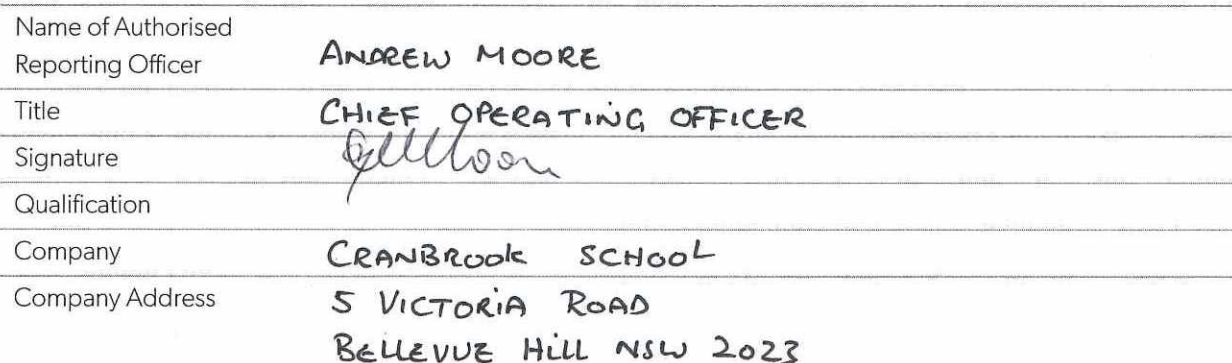 Name of Authorised
Reporting Officer
ANDREW MOORE
Title
CHIEF OPERATING OFFICER
Signature
Qualification
Company
CRANBROOK SCHOOL
Company Address
5 VICTORIA ROAD
BELLEVUE HILL NSW 2023